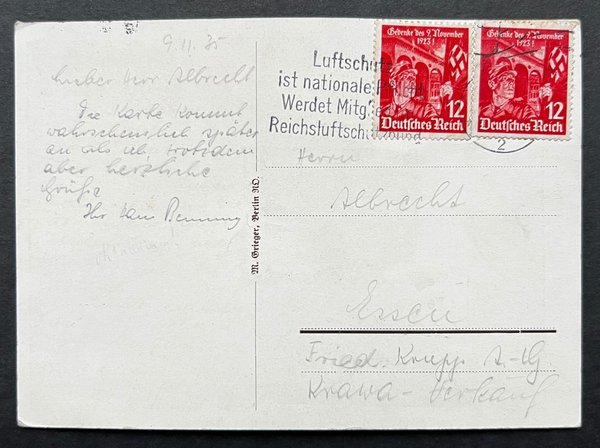 9.11.35
Lieber Herr Albrecht
Die Karte kommt
wahrscheinlich später
an als ich, trotzdem
aber herzliche
Grüße
Ihr
M. Grieger, Berlin NO.
Luftschutz
ist nationale
Werdet Mitglied
Reichsluftschutzbund
2
Gedenke des 9. November
1923!
12
Deutsches Reich
Gedenke des 9. November
1923!
12
Deutsches Reich
Herrn
Albrecht
Essen
Fried. Krupp A.-G.
Krawa-Verkauf